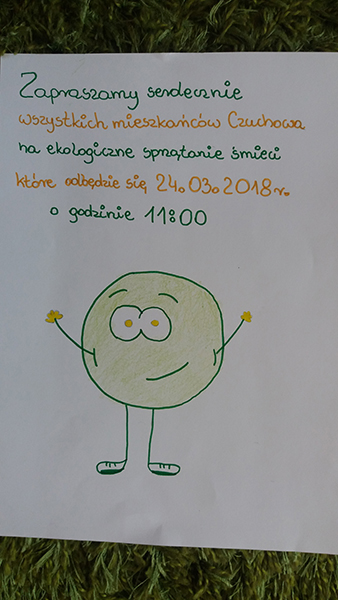 Zapraszamy serdecznie
wszystkich mieszkańców Czuchowa
na ekologiczne sprzątanie śmieci
które odbędzie się 24.03.2018r.
o godzinie 11:00